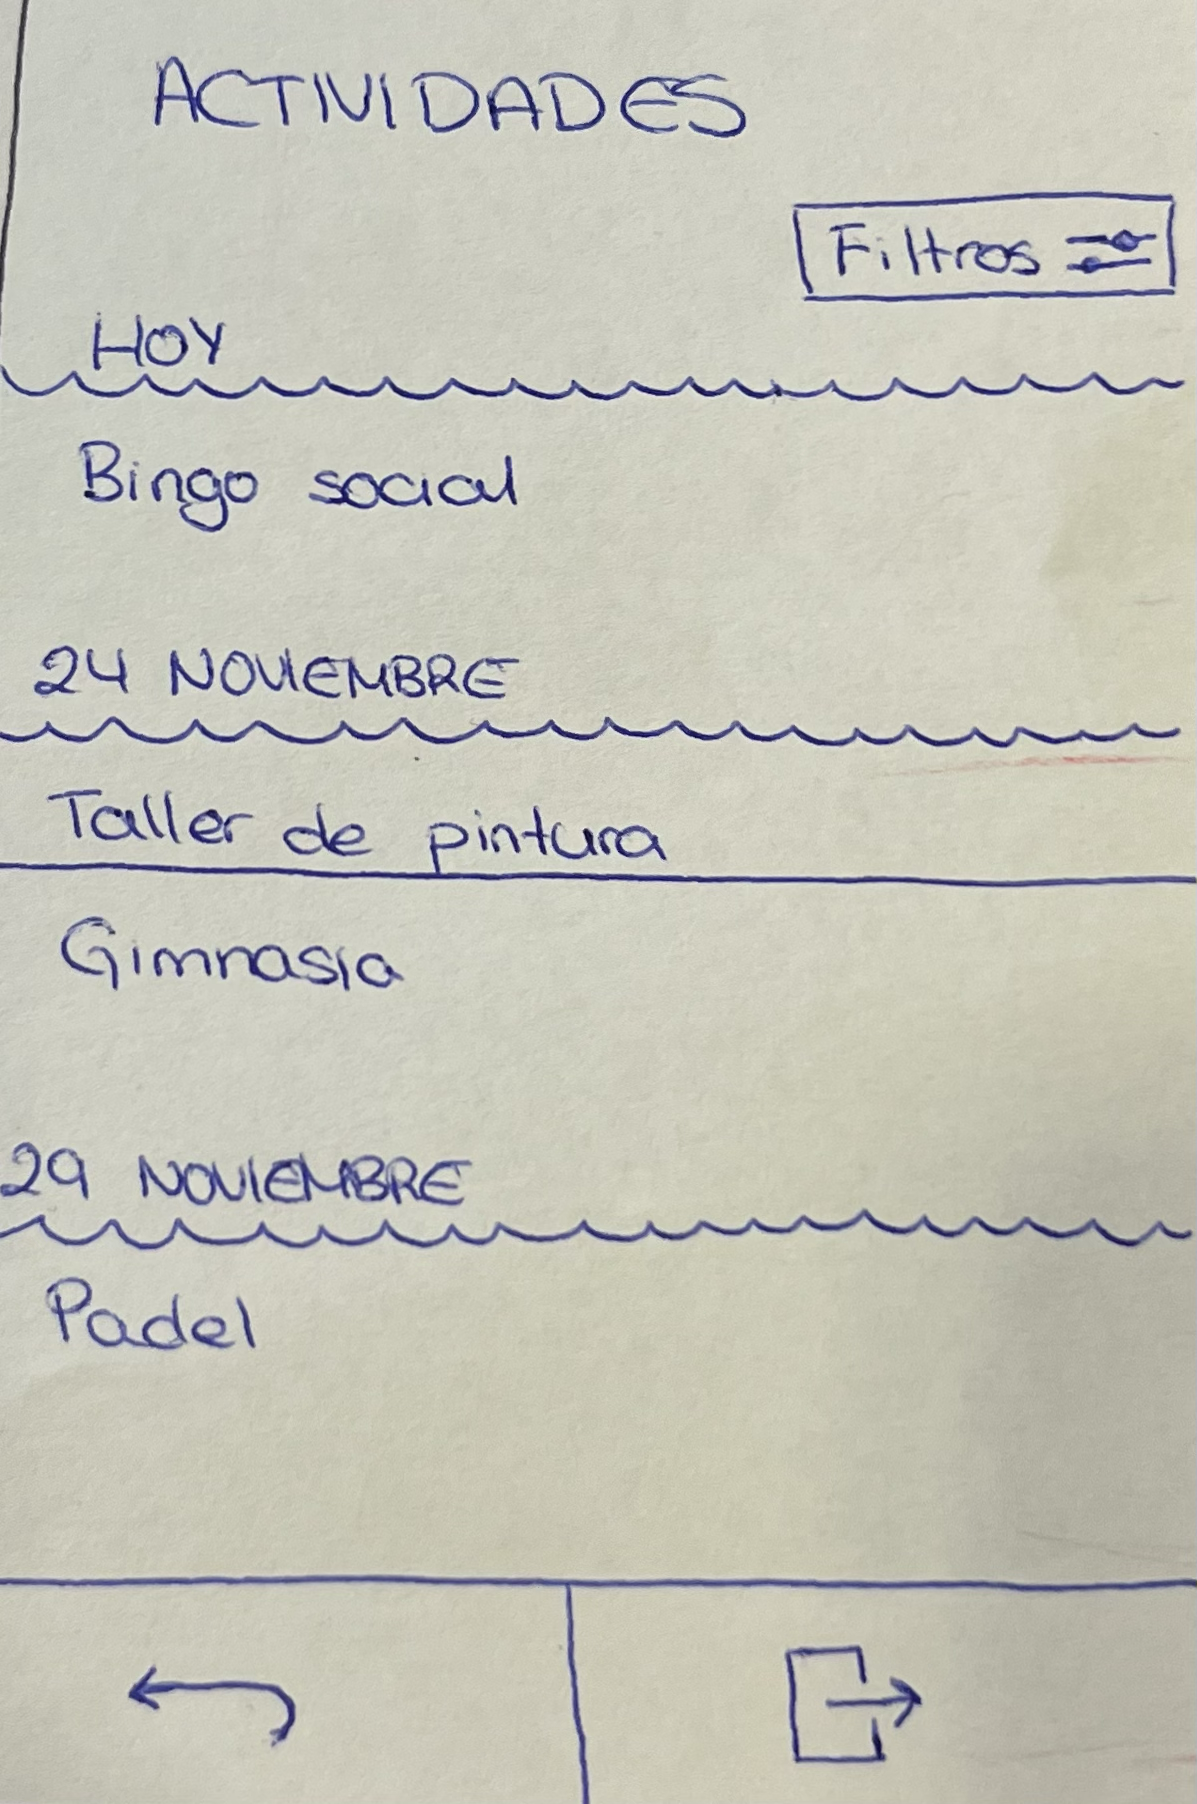 ACTIVIDADES
Filtros
HOY
Bingo social
24 NOVIEMBRE
Taller de pintura
Gimnasia
29 NOVIEMBRE
Padel